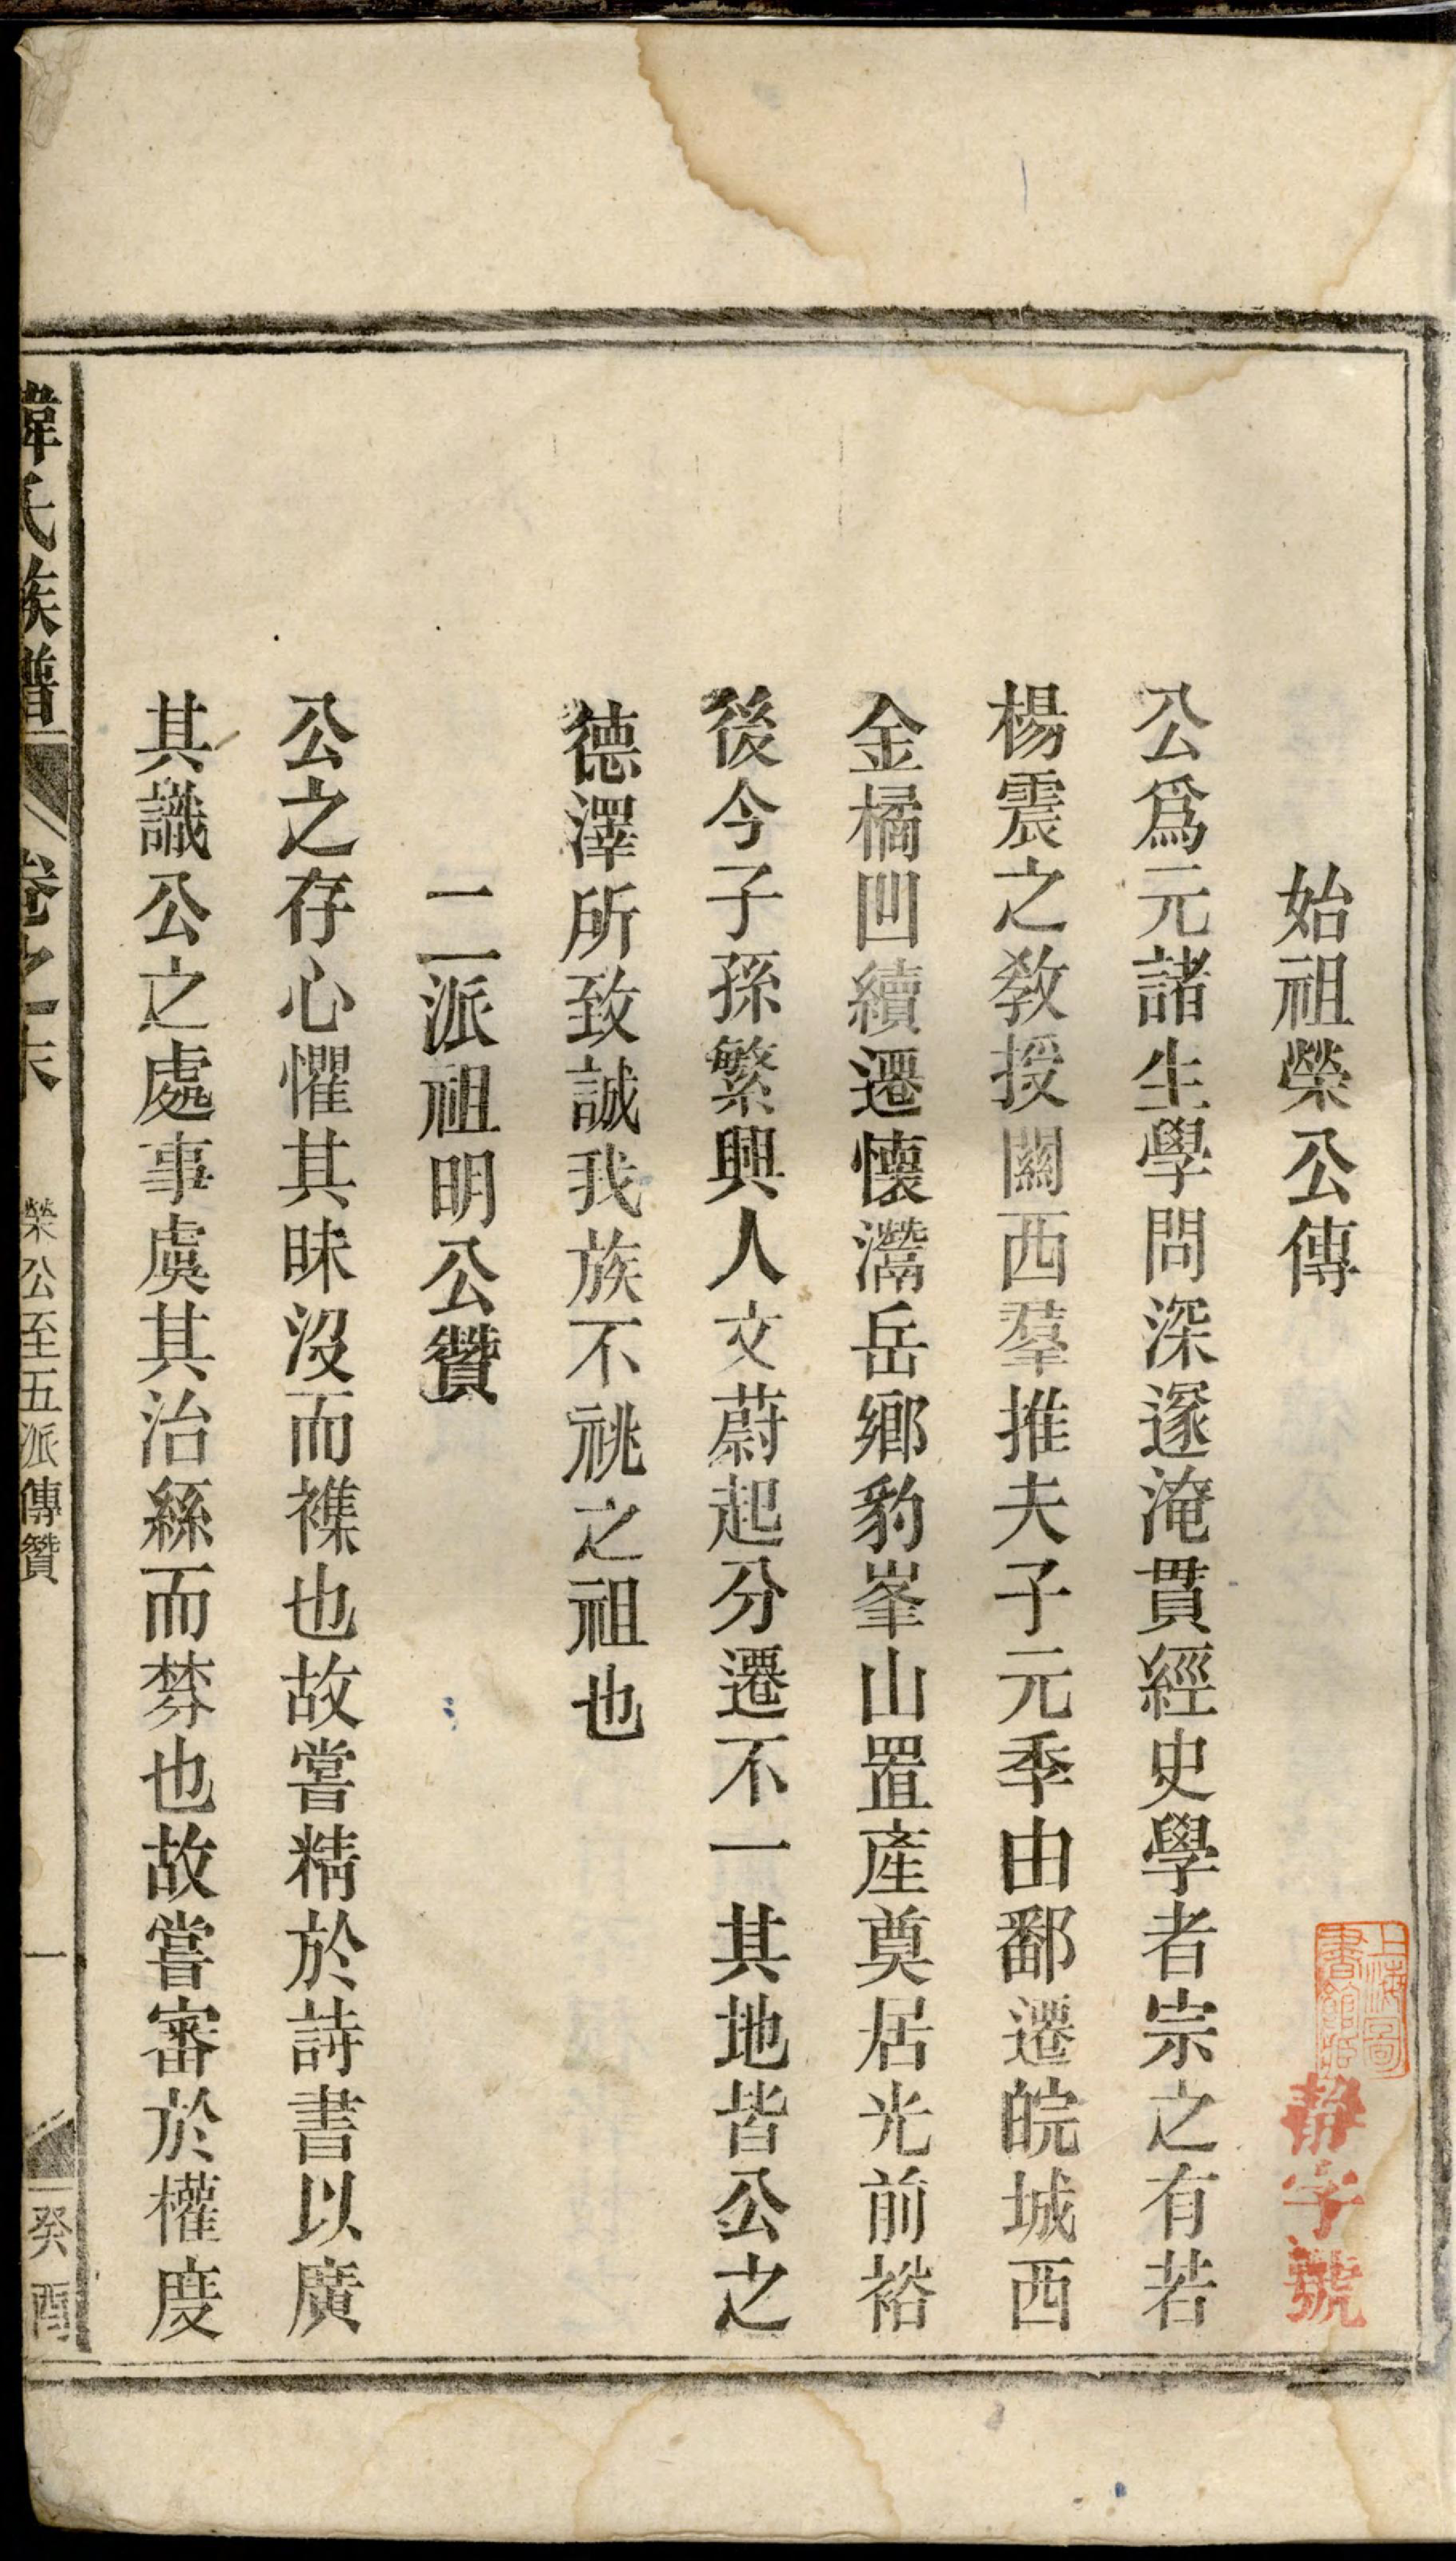 始祖榮公傳
公爲元諸生學問深邃淹貫經史學者宗之有若
楊震之教授關西羣推夫子元季由鄱遷皖城西
金橘凹續遷懷灊岳鄉豹峯山置產奠居光前裕
後今子孫繁興人文蔚起分遷不一其地皆公之
德澤所致誠我族不祧之祖也
二派祖明公贊
公之存心懼其昧沒而襍也故嘗精於詩書以廣
其識公之處事虞其治絲而棼也故嘗審於權度
韓氏族譜
卷之末
榮公至五派傳贊
一
癸酉
上海圖
書館藏
靜字號